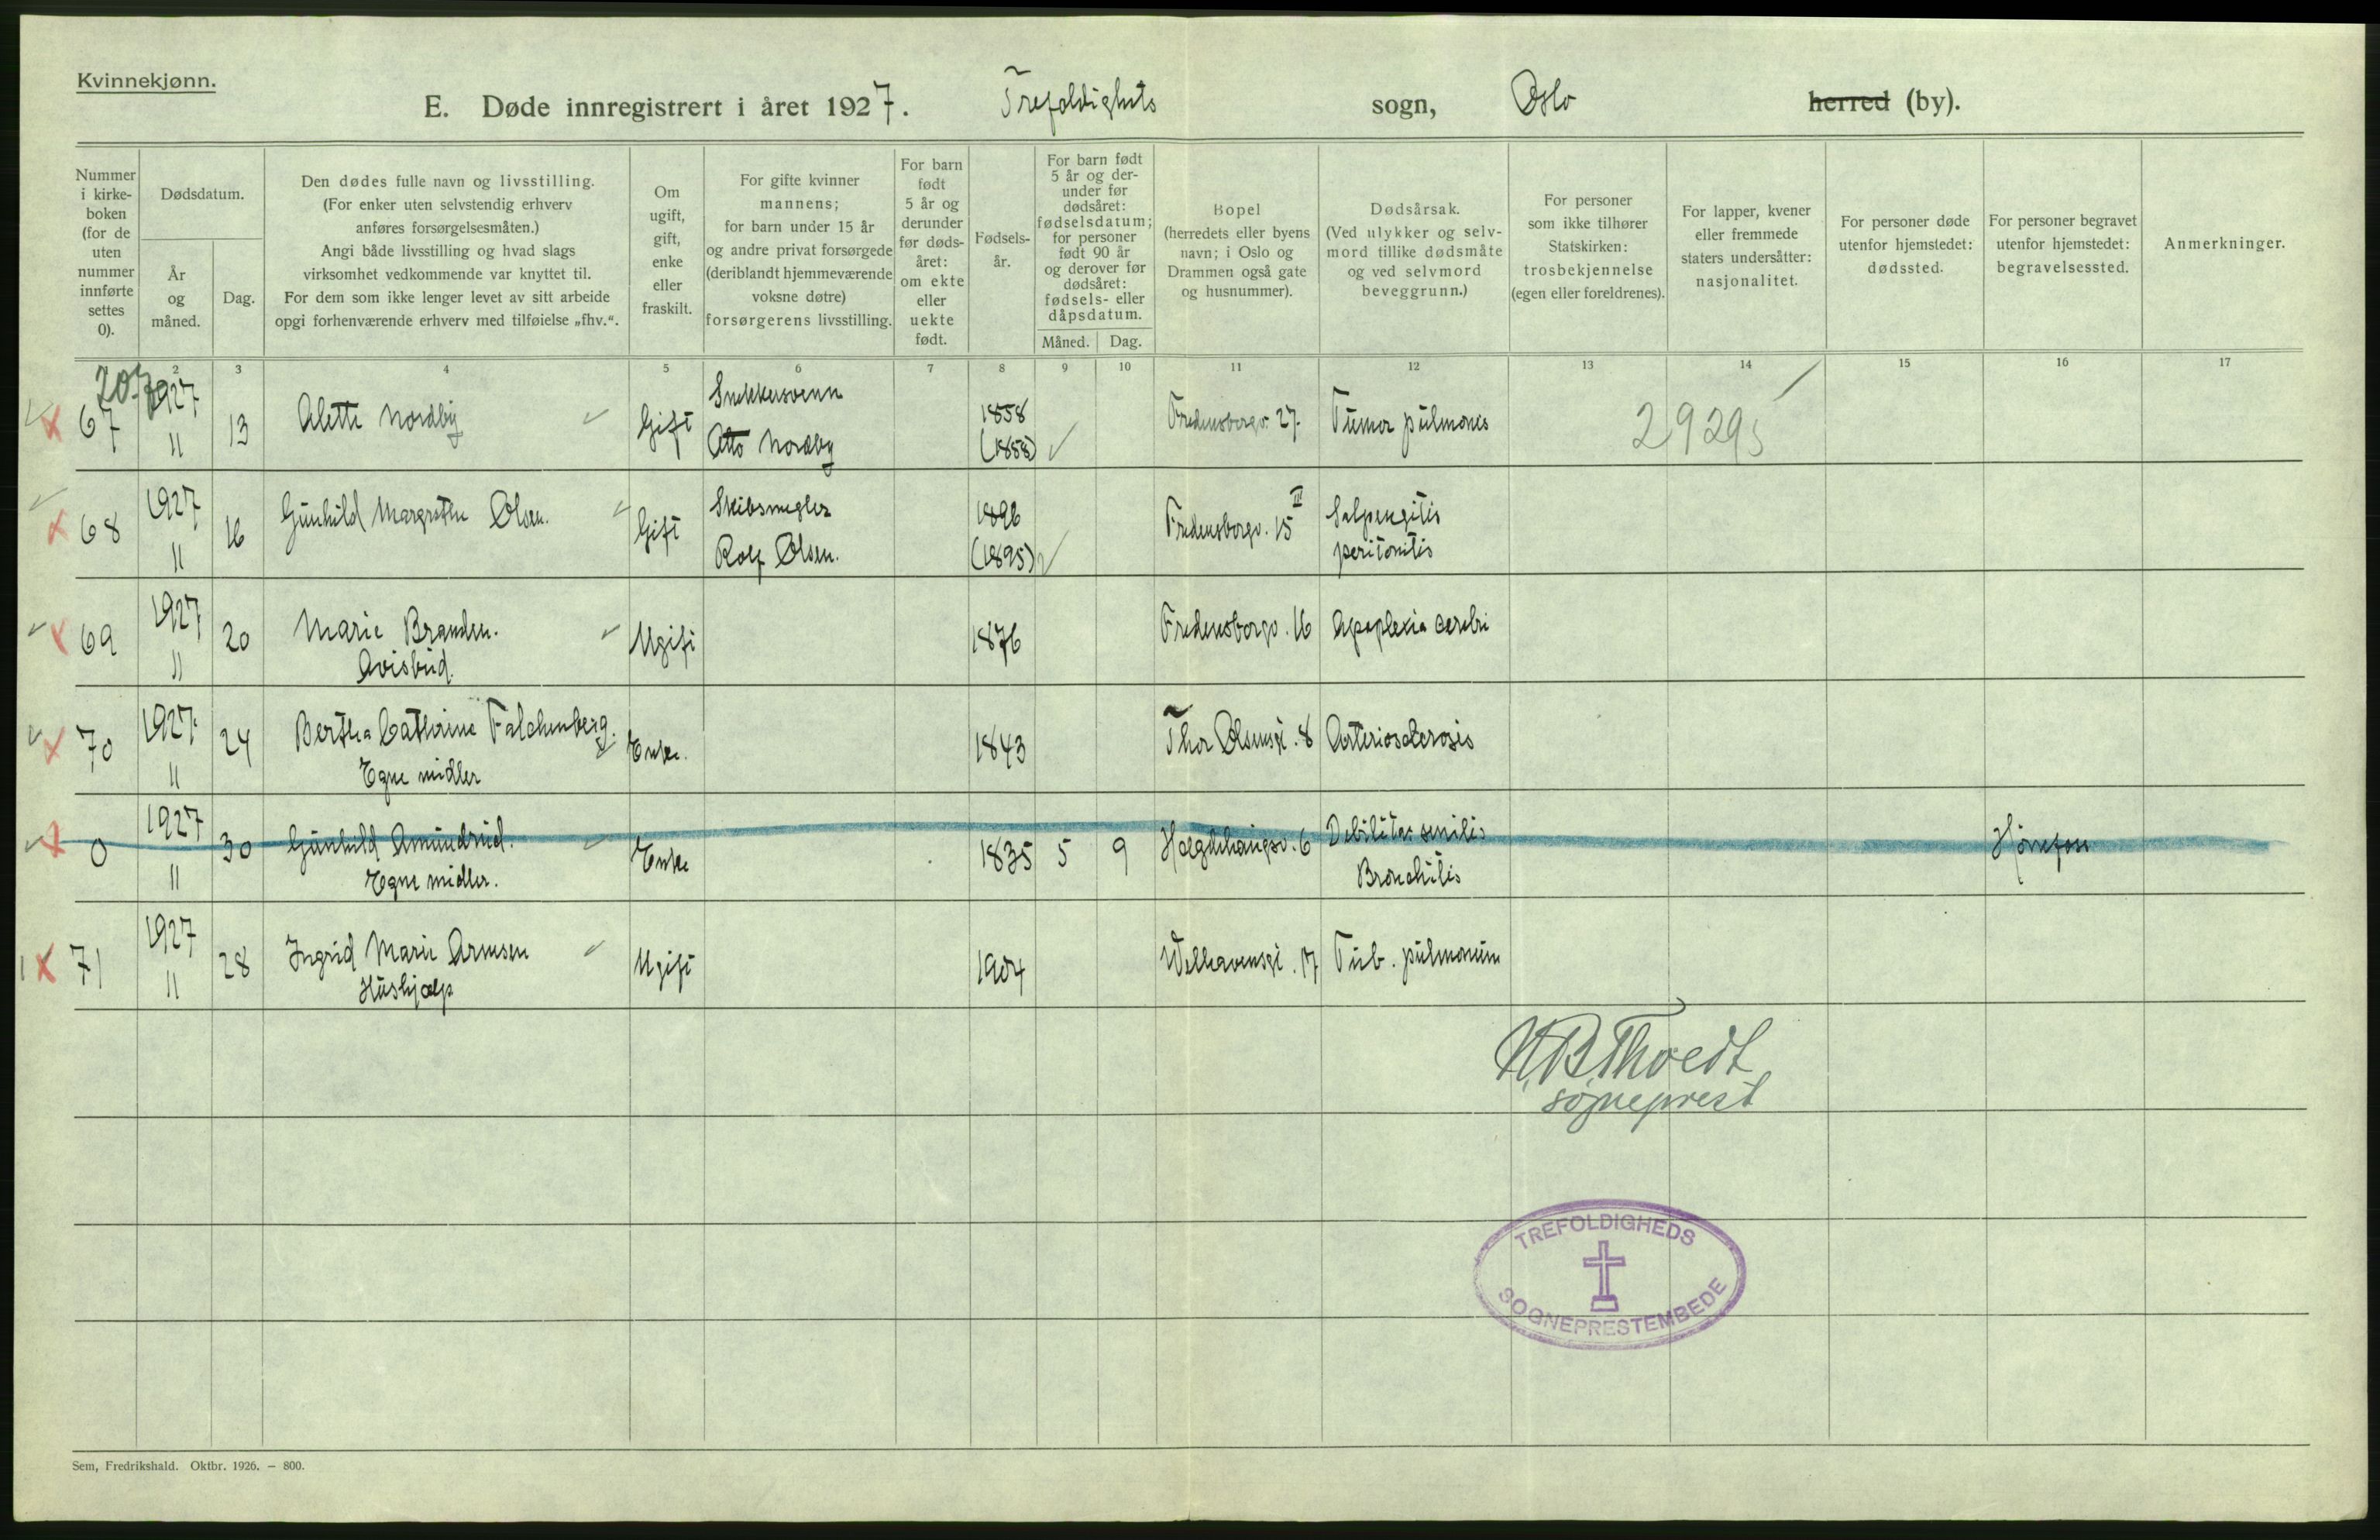 Kvinnekjønn.
E. Døde innregistrert i året 1927. Trefoldighets sogn, Oslo herred (by).
Nummer i kirke- boken (for de uten nummer innførte settes 0).
Dødsdatum.
År og måned.
Dag.
Den dødes fulle navn og livsstilling.
(For enker uten selvstendig erhverv
anføres forsørgelsesmåten.)
Angi både livsstilling og hvad slags
virksomhet vedkommende var knyttet til.
For dem som ikke lenger levet av sitt arbeide
opgi forhenværende erhverv med tilføielse „fhv.“.
Om ugift, gift, enke eller fraskilt.
For gifte kvinner
mannens;
for barn under 15 år
og andre privat forsørgede
(deriblandt hjemmeværende
voksne døtre)
forsørgerens livsstilling.
For barn født 5 år og derunder før døds- året: om ekte eller uekte født.
Fødsels- år.
For barn født
5 år og der-
under før
dødsåret:
fødselsdatum;
for personer
født 90 år
og derover før
dødsåret:
fødsels- eller
dåpsdatum.
Måned. Dag.
Bopel
(herredets eller byens
navn; i Oslo og
Drammen også gate
og husnummer).
Dødsårsak.
(Ved ulykker og selv-
mord tillike dødsmåte
og ved selvmord
beveggrunn.)
For personer
som ikke tilhører
Statskirken:
trosbekjennelse
(egen eller foreldrenes).
For lapper, kvener
eller fremmede
staters undersåtter:
nasjonalitet.
For personer døde
utenfor hjemstedet:
dødssted.
For personer begravet
utenfor hjemstedet:
begravelsessted.
Anmerkninger.
2 3 4 5 6 7 8 9 10 11 12 13 14 15 16 17
67 1927 11 13 Alette Nordby Gift Snekkersvenn Otto Nordby 1858 (1858) Fredensborgv. 27. Tumor pulmones 29295
68 1927 11 16 Gunhild Margrethe Olsen. Gift Skibsmegler Rolf Olsen. 1896 (1895) Fredensborgv. 15 II Salpengitis peritonitis
69 1927 11 20 Marie Branden. Avisbud. Ugift 1876 Fredensborgv. 16 Apoplexia cerebri
70 1927 11 24 Bertha Cathrine Falchenberg. Egne midler Enke. 1843 Thor Olsensgt. 8 Arteriosclerosis
0 1927 11 30 Gunhild Amundrud. Egne midler. Enke 1835 5 9 Hægdehaugsv. 6 Debilitas senilis Bronchitis Hønefoss
71 1927 11 28 Ingrid Marie Arnesen Hushjælp Ugift 1904 Welhavensgt. 17 Tub. pulmonum
sogneprest
TREFOLDIGHEDS
SOGNEPRESTEMBEDE
Sem, Fredrikshald. Oktbr. 1926. — 800.